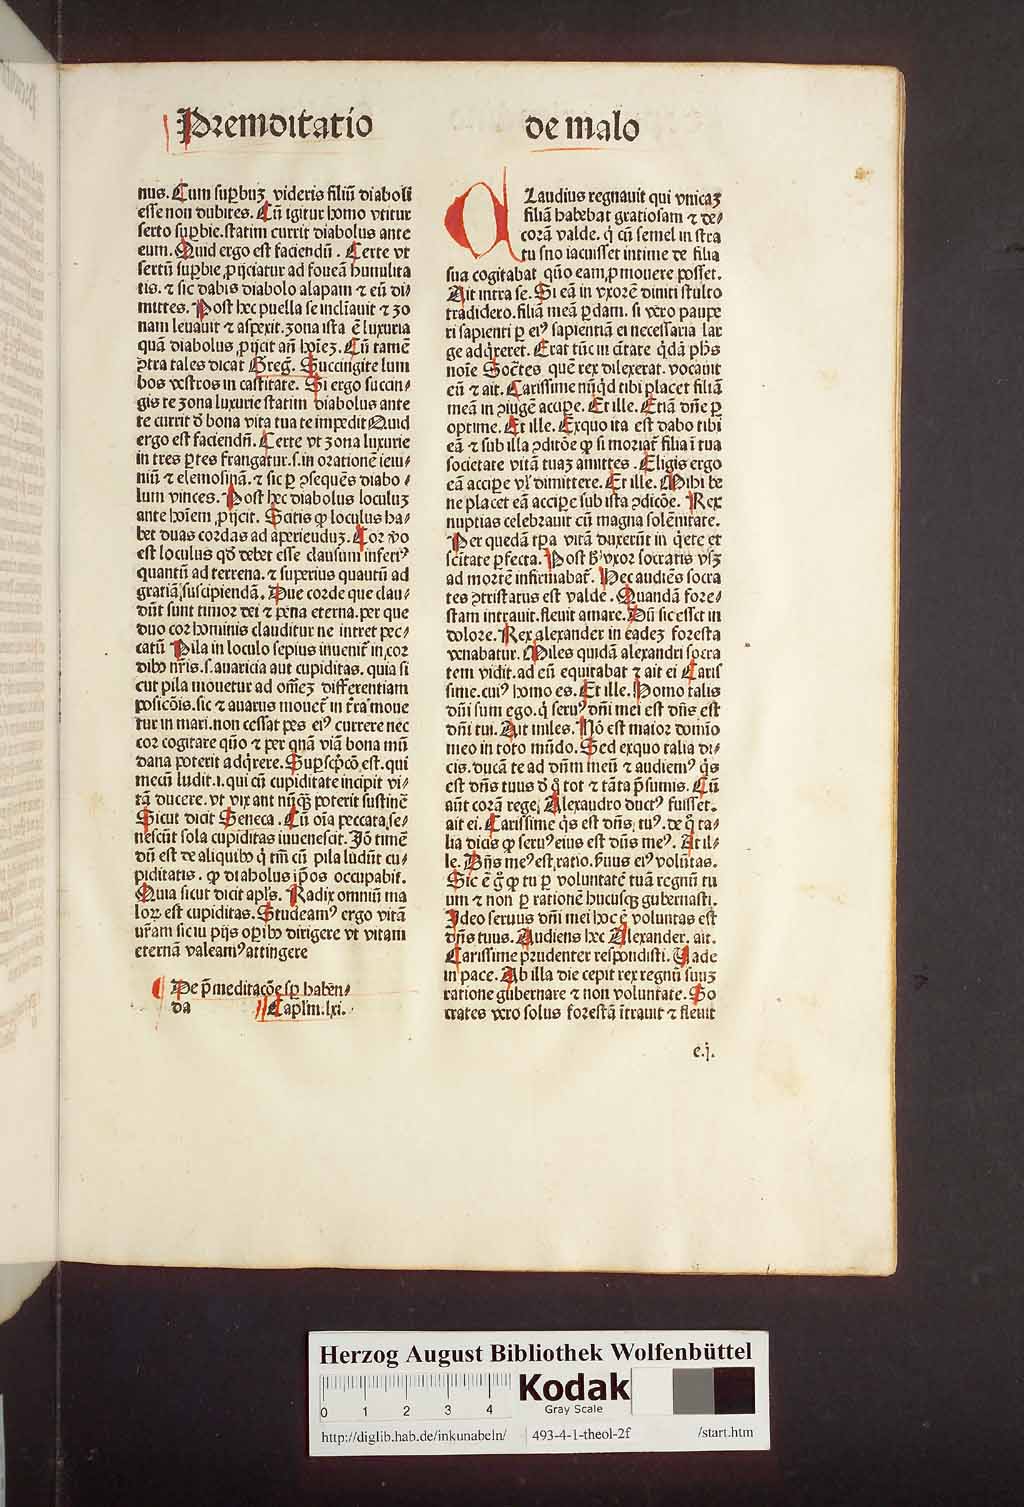 Premditatio
de malo
nus. Cum supbuz videris filiū diaboli
esse non dubites. Cū igitur homo vtitur
serto supbie. statim currit diabolus ante
eum. Quid ergo est faciendū. Certe vt
sertū supbie ꝓijciatur ad foueā humilita
tis. ⁊ sic dabis diabolo alapam ⁊ eū di⸗
mittes. Post hec puella se incliauit ⁊ zo
nam leuauit ⁊ aspexit. zona ista ē luxuria
quā diabolus ꝓijcit añ hoiez. Cū tamē
ꝯtra tales dicat Greg. Succingite lum
bos vestros in castitate. Si ergo succin⸗
gis te zona luxurie statim diabolus ante
te currit ꝺ bona vita tua te impedit Quid
ergo est faciendū. Certe vt zona luxurie
in tres ptes frangatur. s. in orationē ieiu⸗
niū ⁊ elemosinā. ⁊ sic ꝑ ꝯsequēs diabo⸗
lum vinces. Post hec diabolus loculuz
ante hoīem ꝓijcit. Scitis ꝙ loculus ha⸗
bet duas cordas ad aperienduz. Cor ꝟo
est loculus qđ debet esse clausum inferiꝰ
quantū ad terrena. ⁊ superius quantū ad
gratiā suscipiendā. Due corde que clau⸗
dūt sunt timor dei ⁊ pena eterna. per que
duo cor hominis clauditur ne intret pec⸗
catū Pila in loculo sepius inuenit in cor
dibꝰ nris. s. auaricia aut cupiditas. quia si
cut pila mouetur ad omēz differentiam
posicōis. sic ⁊ auarus mouet in tra moue
tur in mari. non cessat pes eiꝰ currere nec
cor cogitare qūo ⁊ per qnā viā bona mū
dana poterit adqrere. Supscpcō est. qui
mecū ludit. i. qui cū cupiditate incipit vi⸗
tā ducere. vt vix aut nūqꝫ poterit sustinē
Sicut dicit Seneca. Cū oīa peccata se⸗
nescūt sola cupiditas iuuenescit. Jō timē
dū est de aliquibꝰ q tm cū pila ludūt cu⸗
piditatis. ꝙ diabolus ipos occupabit.
Quia sicut dicit apls. Radix omniū ma
loꝝ est cupiditas. Studeamꝰ ergo vitā
nram siciu pijs opibꝰ dirigere vt vitam
eternā valeamꝰ attingere
De pmeditacōe sp haben⸗
da Caplm. lxi.
Claudius regnauit qui vnicaz
filiā habebat gratiosam ⁊ de⸗
corā valde. q cū semel in stra
tu suo iacuisset intime de filia
sua cogitabat qūo eam ꝓmouere posset.
Ait intra se. Si eā in vxorē diuiti stulto
tradidero. filiā meā pdam. si vero paupe
ri sapienti p eiꝰ sapientiā ei necessaria lar
ge adqreret. Erat tūc in ctate qdā phs
noīe Socrtes quē rex dilexerat. vocauit
eū ⁊ ait. Carissime nūqd tibi placet filiā
meā in ꝯiugē accipe. Et ille. Etiā dñe ꝑ
optime. At ille. Exquo ita est dabo tibi
eā ⁊ sub illa ꝯditōe ꝙ si moriat filia ī tua
societate vitā tuaz amittes. Eligis ergo
eā accipe vl dimittere. Et ille. Mihi be
ne placet eā accipe sub ista ꝯdicōe. Rex
nuptias celebrauit cū magna solēnitate.
Per quedā tpa vitā duxerūt in qete et
scitate pfecta. Post h vxor socratis vsꝫ
ad mortē infirmabat. Hec audiēs socra
tes ꝯtristatus est valde. Quandā fore⸗
stam intrauit. fleuit amare. Dū sic esset in
dolore. Rex alexander in eadez foresta
venabatur. Miles quidā alexandri socra
tem vidit. ad eū equitabat ⁊ ait ei Caris
sime. cuiꝰ homo es. Et ille. Homo talis
dñi sum ego. q seruꝰ dñi mei est dñs est
dñi tui. Ait miles. Nō est maior domīo
meo in toto mūdo. Sed exquo talia di⸗
cis. ducā te ad dñm meū ⁊ audiemꝰ qs
est dñs tuus ꝺ q tot ⁊ tāta psumis. Cū
aūt corā rege Alexandro ductꝰ fuisset.
ait ei. Carissime qs est dñs tuꝰ. de q ta⸗
lia dicis ꝙ seruꝰ eius est dñs meꝰ. At il⸗
le. Dñs meꝰ est ratio. huus eiꝰ volūtas.
Sic ē g ꝙ tu ꝑ voluntatē tuā regnū tu
um ⁊ non ꝑ rationē hucusqꝫ gubernasti.
Ideo seruus dñi mei hoc ē voluntas est
dñs tuus. Audiens hec Alexander. ait.
Carissime prudenter respondisti. Vade
in pace. Ab illa die cepit rex regnū suuz
ratione gubernare ⁊ non voluntate. So
crates vero solus forestā itrauit ⁊ fleuit
e.j.
Herzog August Bibliothek Wolfenbüttel
0 1 2 3 4
Kodak
Gray Scale
http://diglib.hab.de/inkunabeln/ 493-4-1-theol-2f /start.htm